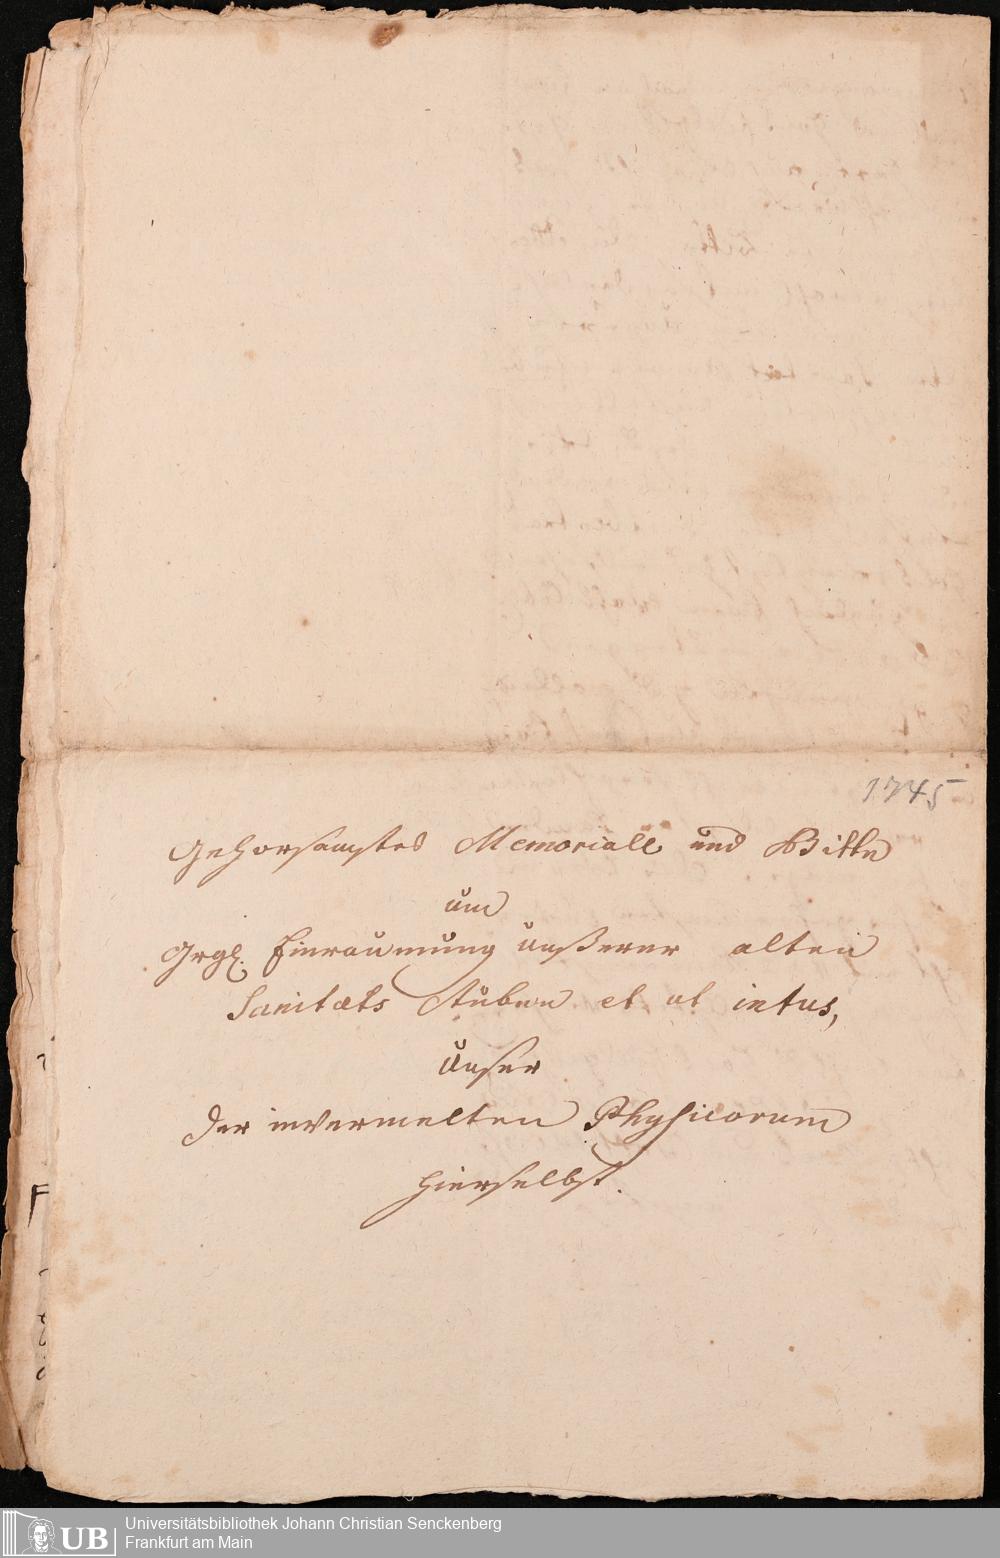 1745
Gehorsamstes Memoriale und Bitte
um
Grgl. Einraumung unßerer alten
Sanitæts Stuben et ut intus,
Unser
Der invermelten Physicorum
hierselbst.
UB
Universitätsbibliothek Johann Christian Senckenberg
Frankfurt am Main